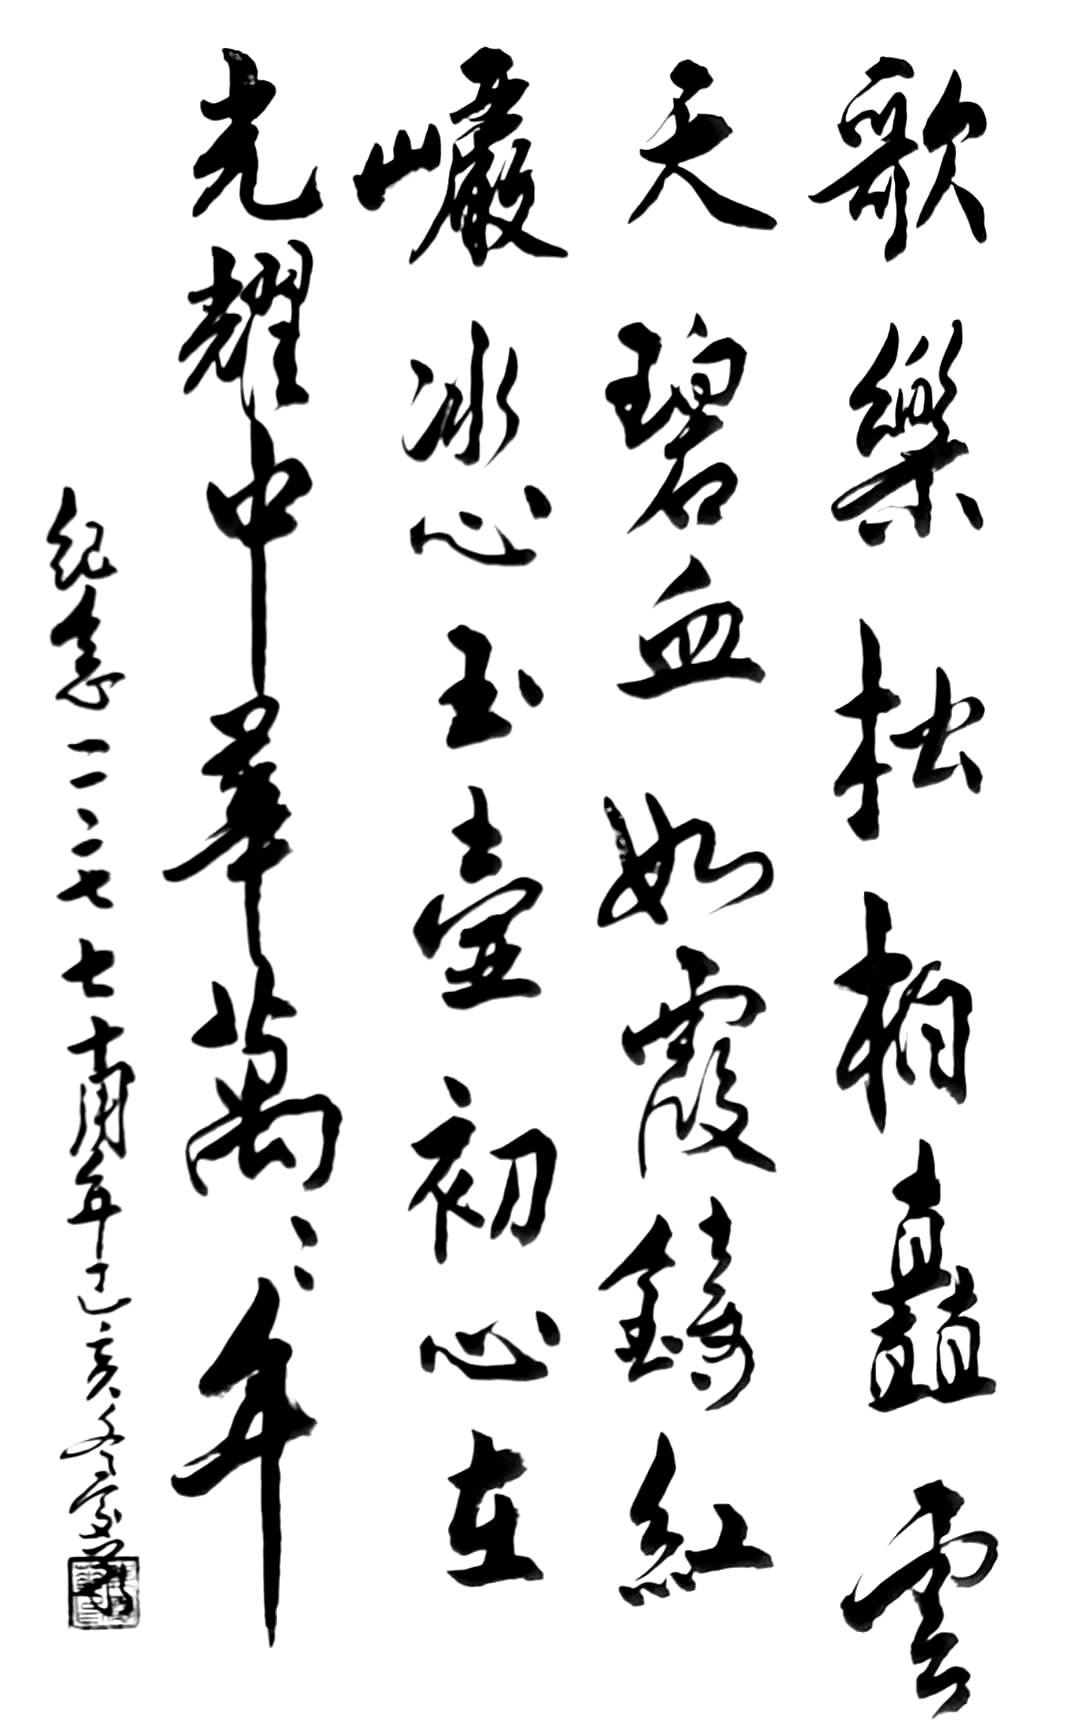 歌樂松柏矗雲
天碧血如霞鑄紅
巖冰心玉壺初心在
光耀中華萬〻年
紀念一一、二七七十周年己亥冬